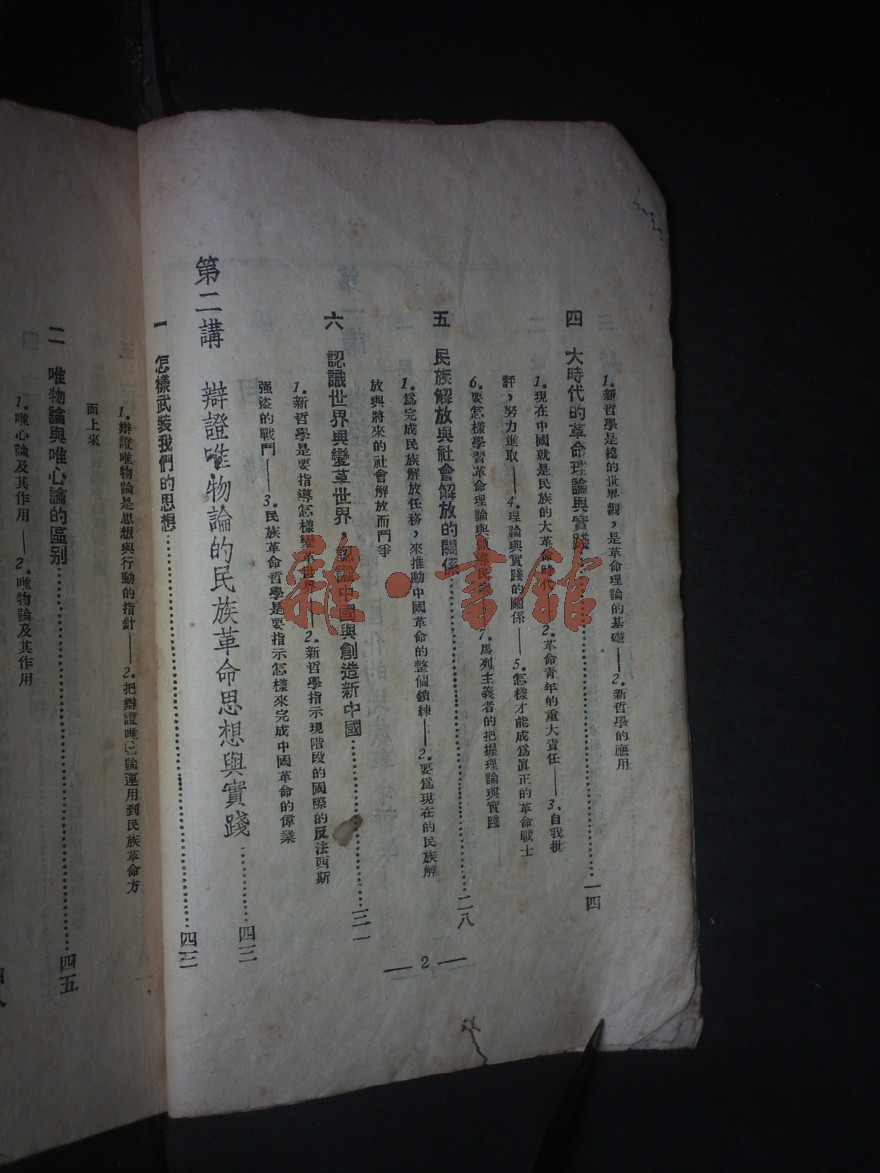 1.新哲學是總的世界觀，是革命理論的基礎——2.新哲學的應用
四　大時代的革命理論與實踐……一四
1.現在中國就是民族的大革命時代　2.革命青年的重大責任——3.自我批
評，努力進取——4.理論與實踐的關係——5.怎樣才能成爲眞正的革命戰士
6.要怎樣學習革命理論與　7.馬列主義者的把握理論與實踐
五　民族解放與社會解放的關係……二八
1.爲完成民族解放任務，來推動中國革命的整個鎖練——2.要爲現在的民族解
放與將來的社會解放而鬥爭
六　認識世界與變革世界，認識中國與創造新中國……三一
1.新哲學是要指導怎樣變革世界——2.新哲學指示現階段的國際的反法西斯
强盜的戰鬥——3.民族革命哲學是要指示怎樣來完成中國革命的偉業
第二講　辯證唯物論的民族革命思想與實踐……四三
一　怎樣武裝我們的思想……四三
1.辯證唯物論是思想與行動的指針——2.把辯證唯物論運用到民族革命方
面上來
二　唯物論與唯心論的區别……四五
1.唯心論及其作用——2.唯物論及其作用
四八
— 2 —
雜·書館